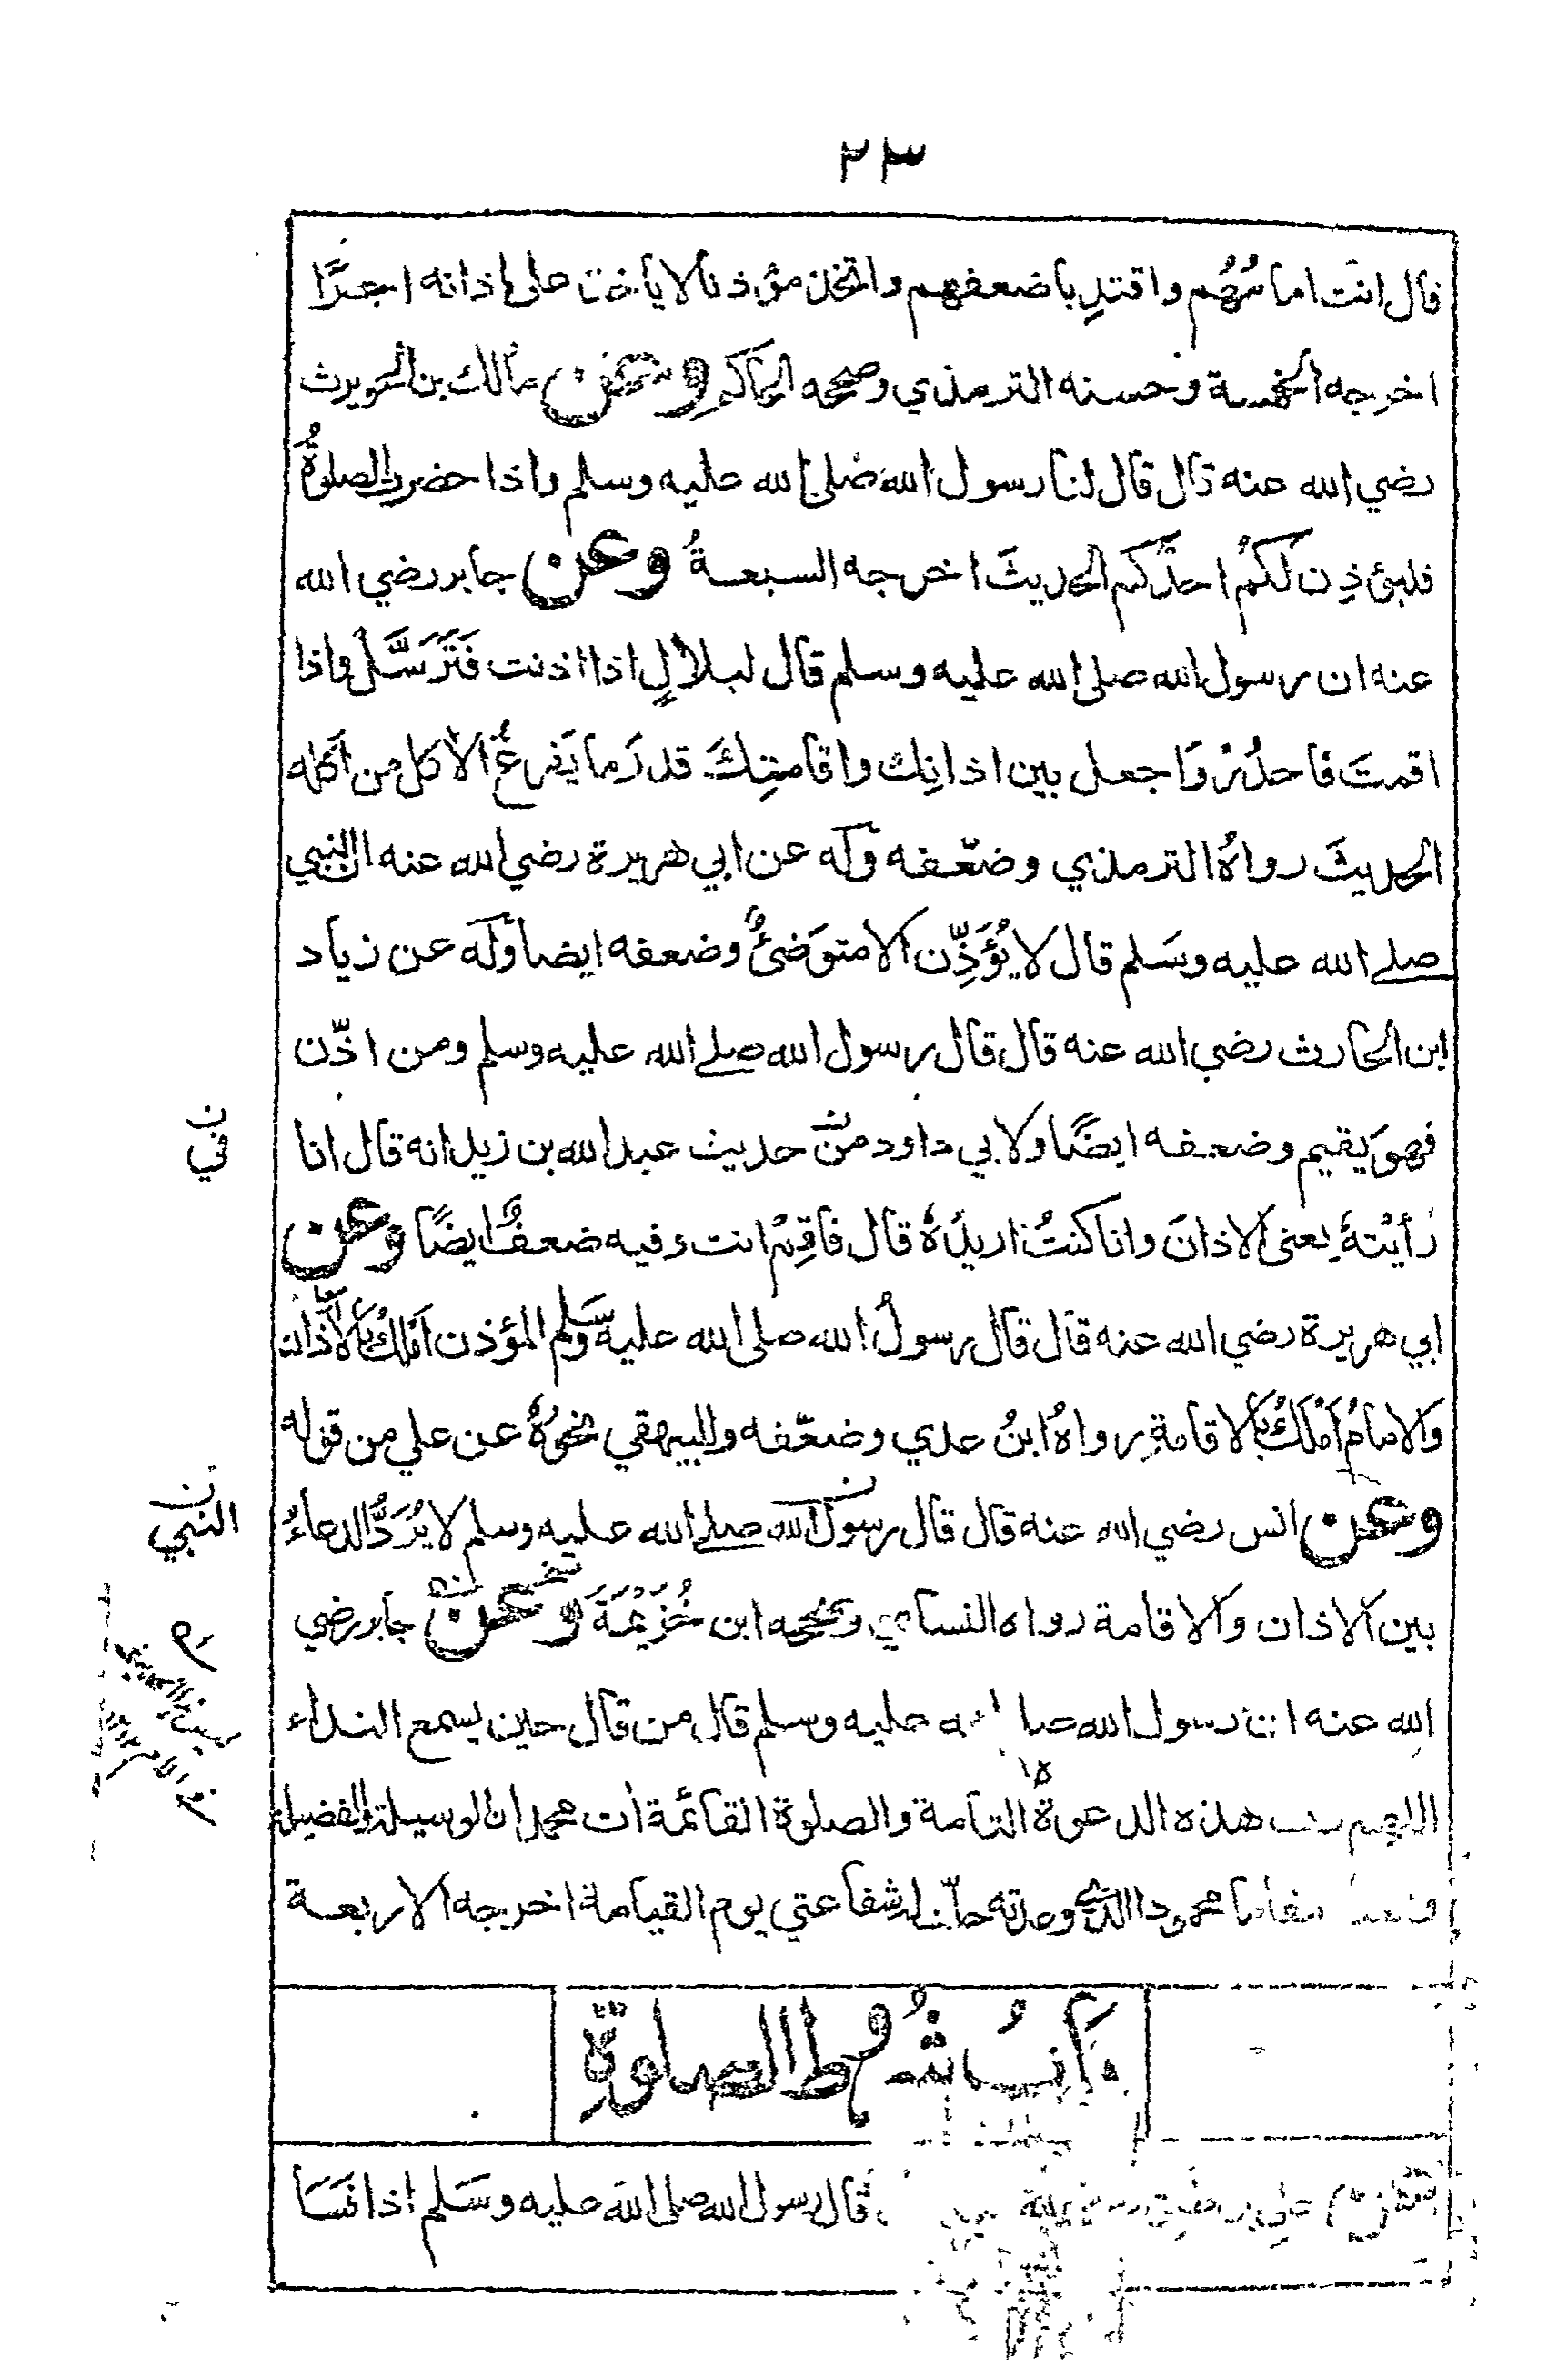 ٢٣
قال انت امامُهُم واقتدِ باضعفهم واتخذ مؤذنا لا ياخذ على اذانه اجرًا
اخرجه الخمسة وحسنه الترمذي وصححه الحاكم وعن مالك بن الحويرث
رضي الله عنه قال قال لنا رسول الله صلى الله عليه وسلم واذا حضرت الصلوةُ
فليؤذِن لَكُم احدُكم الحديثَ اخرجه السبعةُ وعن جابر رضي الله
عنه ان رسول الله صلى الله عليه وسلم قال لبلالٍ اذا اذنت فَتَرَسَّلْ واذا
اقمتَ فاحدُرْ وَاجعل بين اذانِك واقامتِكَ قدرَ ما يَفرغُ الأكل من اكله
الحديثَ رواهُ الترمذي وضعّفه وَله عن ابي هريرة رضي الله عنه ان النبي
صلے الله عليه وسَلم قال لا يُؤَذِّن الا متوَضئٌ وضعفه ايضا وَله عن زياد
ابن الحارث رضي الله عنه قال قال رسول الله صلے الله عليه وسلم ومن اذّن
فهوَ يقيم وضعفه ايضًا ولابي داود من حديث عبد الله بن زيد انه قال انا
رَأيْتهُ يعني الاذانَ وانا كنتُ اريدُهُ قال فاَقِمْ انت وفيه ضعفٌ ايضًا وعن
ابي هريرة رضي الله عنه قال قال رسولُ الله صلى الله عليه وسَلم المؤذن اَمْلكُ بالاَذان
وَالامامُ اَمْلَكُ بالاقامةِ رواهُ ابنُ عدي وضعّفه وللبيهقي نحوُهُ عن علي من قوله
وعن انس رضي الله عنه قال قال رسولُ الله صلے الله عليه وسلم لا يُرَدُّ الدعاءُ
بين الاذان والاقامة رواه النساي وصححه ابن خُزَيْمَةَ وعن جابر رضي
الله عنه ان رسول الله عليه وسلم قال من قال حين يسمع النداء
اللهم رب هذه الدعوة التامة والصلوة القائمة ات محمدان الوسيلة والفضيلة
مقاما محمودا الذي وعدته حلّت له شفاعتي يوم القيامة اخرجه الاربعة
بَابُ شُرُوط الصلوةِ
عن علي بن طلق قال رسول الله صلى الله عليه وسَلم اذا فَسَا
ن
في
ن
النبي